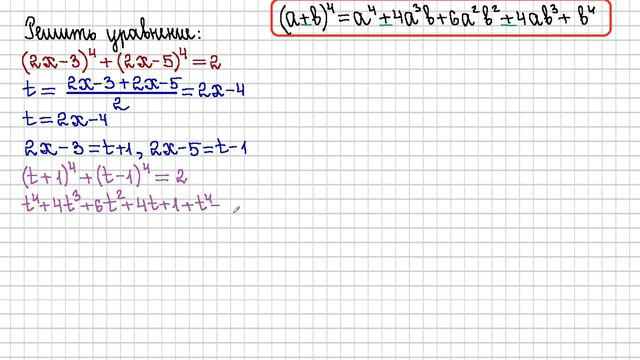 Решить уравнение:
(a+b)⁴=a⁴+4a³b+6a²b²+4ab³+b⁴
(2x-3)⁴+(2x-5)⁴=2
t=(2x-3+2x-5)/2=2x-4
t=2x-4
2x-3=t+1, 2x-5=t-1
(t+1)⁴+(t-1)⁴=2
t⁴+4t³+6t²+4t+1+t⁴-